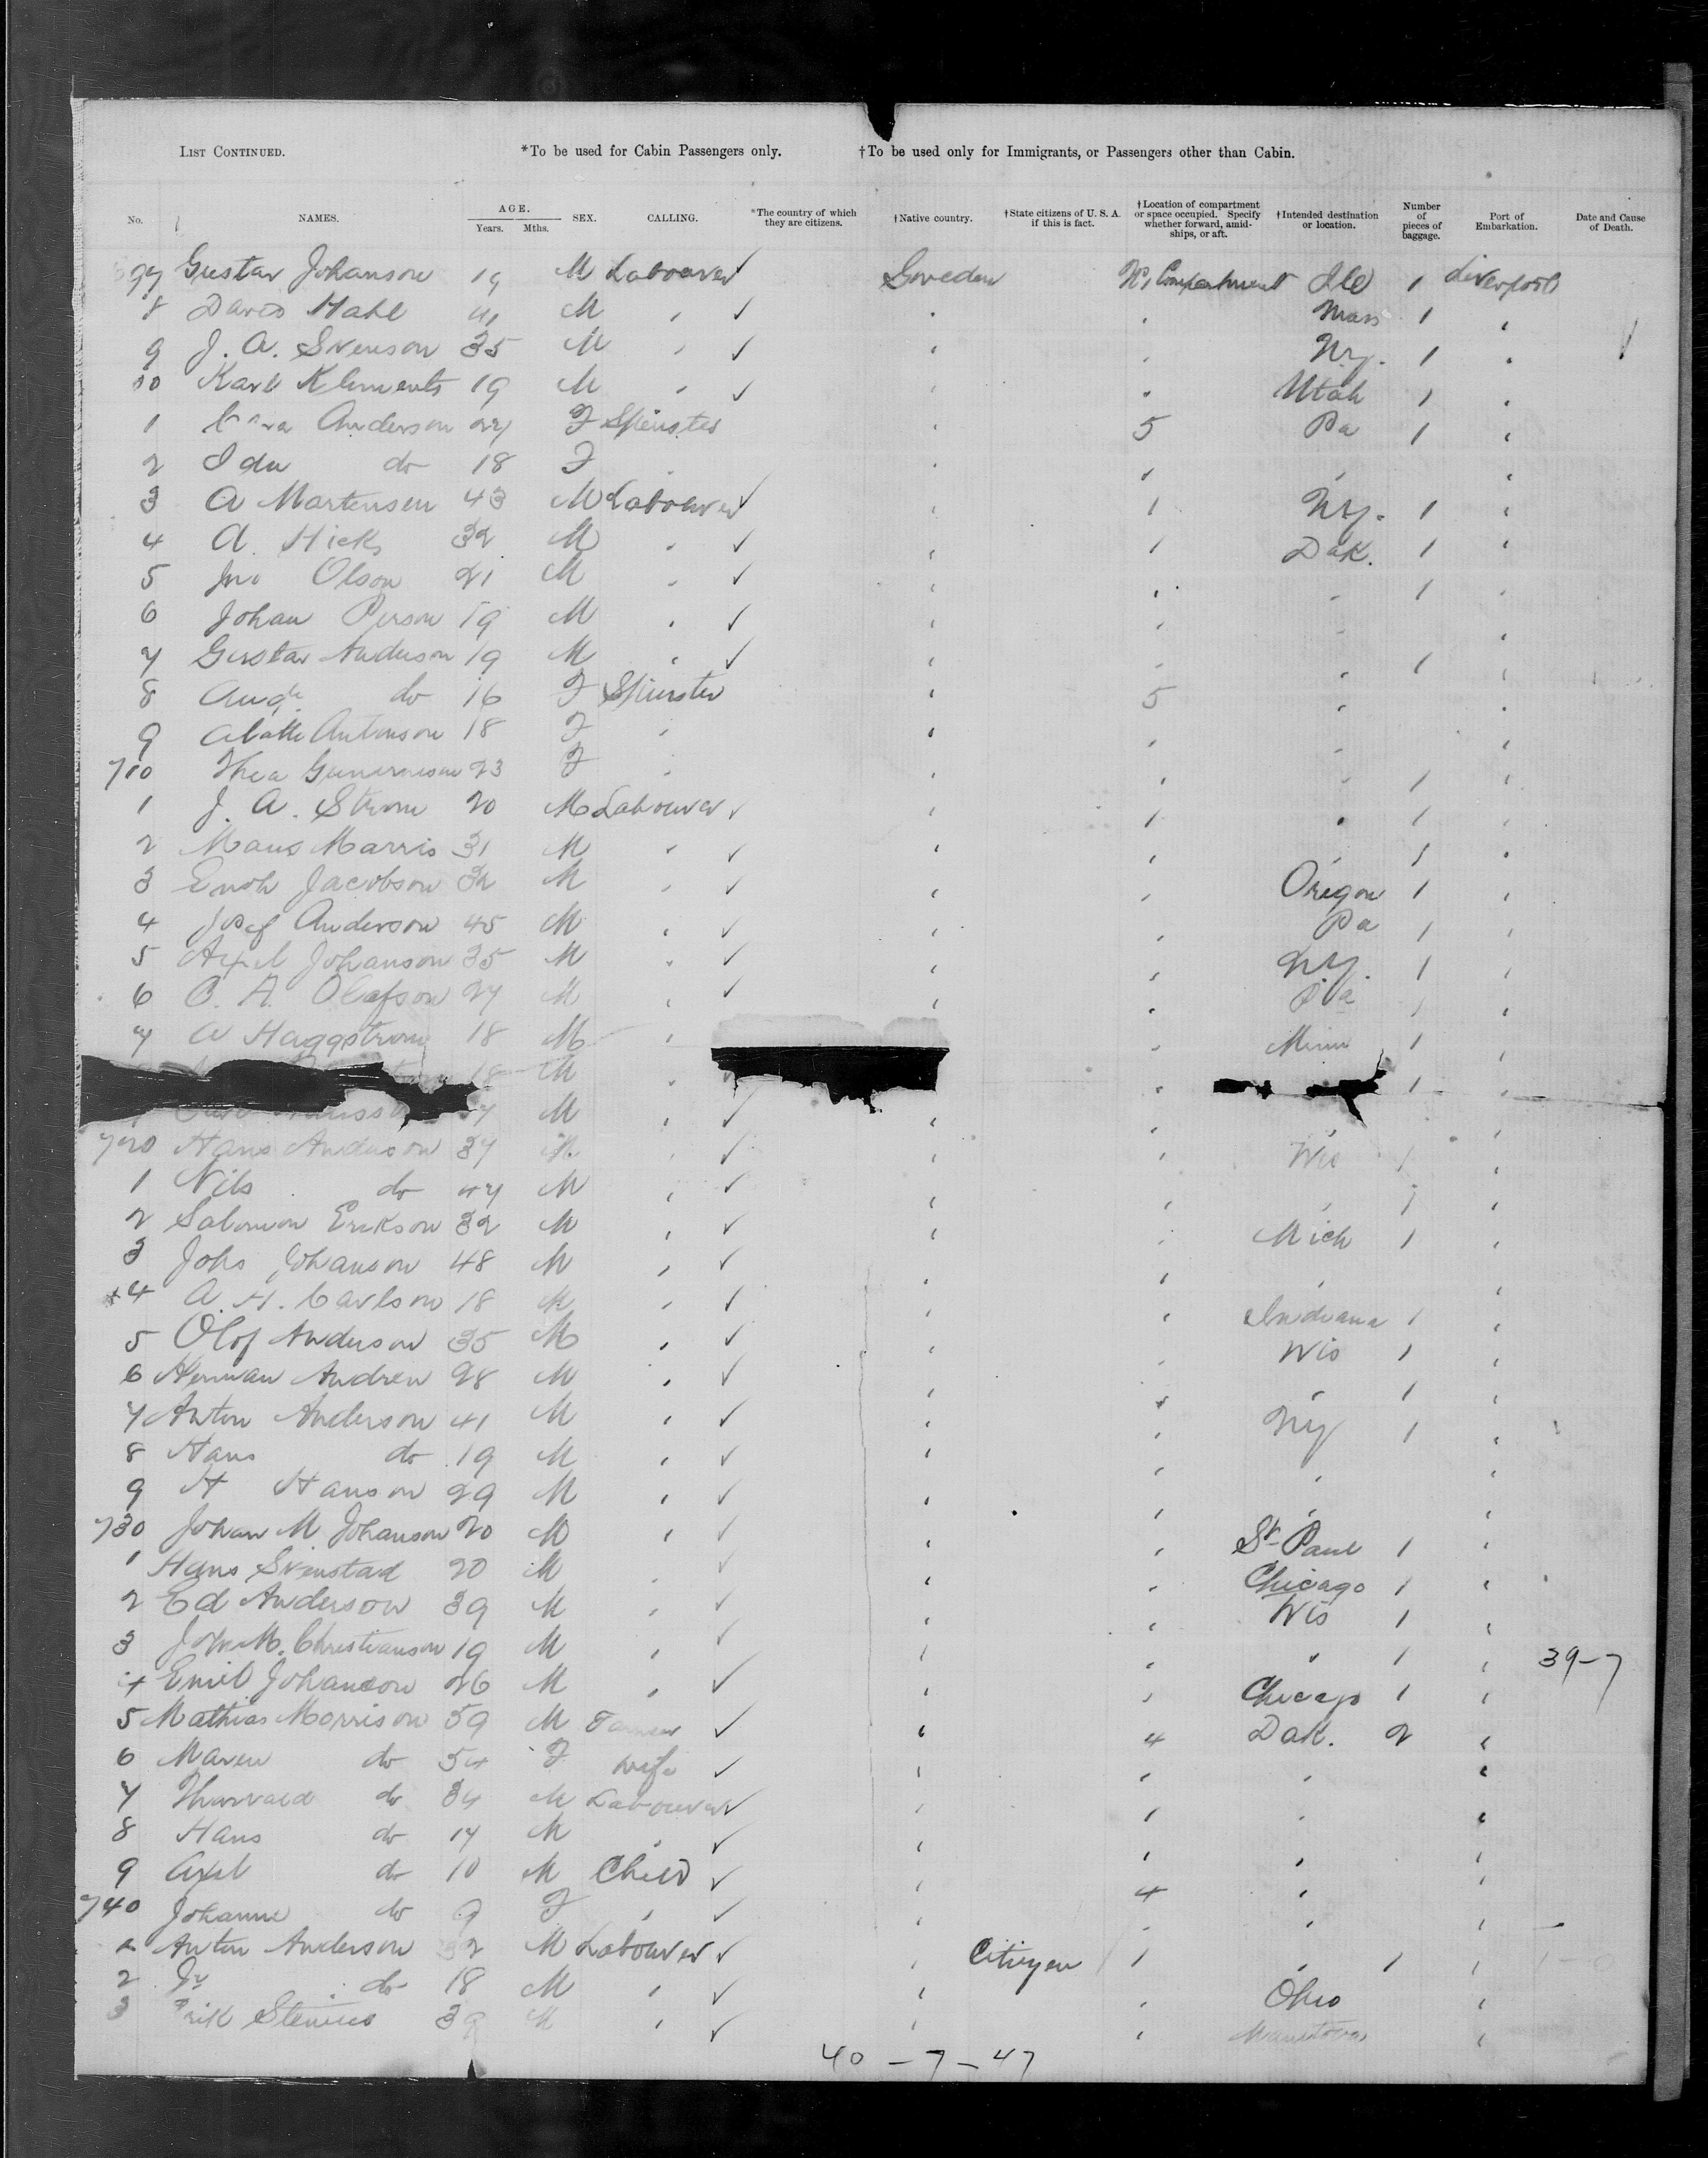 LIST CONTINUED. *To be used for Cabin Passengers only. †To be used only for Immigrants, or Passengers other than Cabin.
No. NAMES. AGE. Years. Mths. SEX. CALLING. *The country of which they are citizens. †Native country. †State citizens of U. S. A. if this is fact. †Location of compartment or space occupied. Specify whether forward, amidships, or aft. †Intended destination or location. Number of pieces of baggage. Port of Embarkation. Date and Cause of Death.
Gustav Johanson 19 M Labourer ✓ Sweden Compartment Ill 1 Liverpool
8 David Hahl 41 M " ✓ " " Mass 1 "
9 J. A. Svenson 35 M " ✓ " " N.y. 1 "
10 Karl Klements 19 M " ✓ " " Utah 1 "
1 Anderson 27 F Spinster " 5 Pa 1 "
2 Ida do 18 F " " " " "
3 A Martensen 43 M Labourer ✓ " 1 N.y. 1 "
4 A. Hicks 32 M " ✓ " 1 Dak. 1 "
5 Jno Olson 21 M " ✓ " " " 1 "
6 Johan Person 19 M " ✓ " " " "
7 Gustav Anderson 19 M " ✓ " " " 1 "
8 Aug. do 16 F Spinster " 5 " "
9 Antonson 18 F " " " " "
710 Thea 23 F " " " " 1 "
1 J. A. Strom 20 M Labourer ✓ " 1 " 1 "
2 Maus Marris 31 M " ✓ " " " 1 "
3 Enoh Jacobson 32 M " ✓ " " Oregon 1 "
4 Josef Anderson 45 M " ✓ " " Pa 1 "
5 Axel Johanson 35 M " ✓ " " N.y. 1 "
6 C. A. Olafson 27 M " ✓ " " Pa 1 "
7 A Haggstrom 18 M " " Minn 1 "
18 M " " 1 "
M " ✓ " " " "
720 Hans Anderson 37 M " ✓ " " Wis 1 "
1 Nils do 47 M " ✓ " " " 1 "
2 Salomon Erikson 32 M " ✓ " " Mich 1 "
3 Johs Johanson 48 M " ✓ " " " "
x4 A. H. Carlson 18 M " ✓ " " Indiana 1 "
5 Olof Anderson 35 M " ✓ " " Wis 1 "
6 Herman Andrew 28 M " ✓ " " " 1 "
7 Anton Anderson 41 M " ✓ " " Ny 1 "
8 Hans do 19 M " ✓ " " " "
9 H Hanson 29 M " ✓ " " " "
730 Johan M. Johanson 20 M " ✓ " " St Paul 1 "
1 Hans Svenstad 20 M " ✓ " " Chicago 1 "
2 Ed Anderson 39 M " ✓ " " Wis 1 "
3 John M. Christianson 19 M " ✓ " " " 1 " 39-7
4 Emil Johanson 26 M " ✓ " " Chicago 1 "
5 Mathias Morrison 59 M Farmer ✓ " 4 Dak. 2 "
6 Maren do 54 F wife ✓ " " " "
7 Thorvald do 34 M Labourer ✓ " 1 " "
8 Hans do 17 M " ✓ " " " "
9 Axel do 10 M Child ✓ " " " "
740 Johanne do 9 F " ✓ " 4 " "
Anton Anderson 32 M Labourer ✓ " Citizen 1 " 1 "
2 do 18 M " ✓ " " Ohio "
3 Erik Stenius 39 M " ✓ " " Manitoba "
40 - 7 - 47